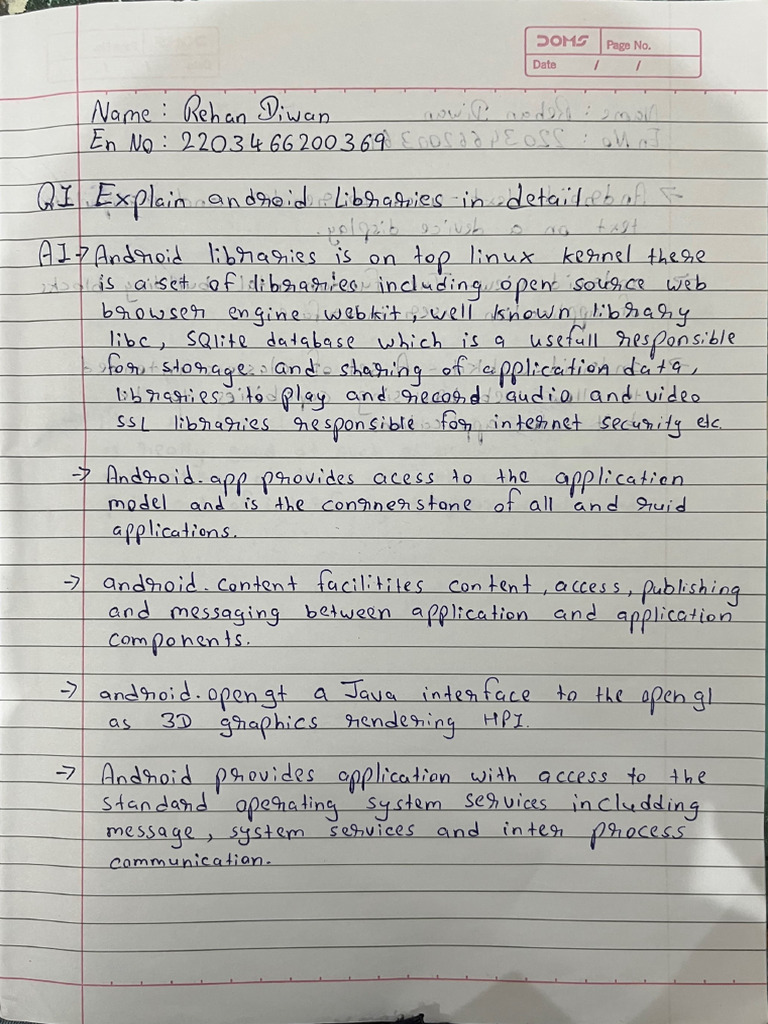 DOMS
Page No.
Date / /
Name : Rehan Diwan
En No : 2203466200369
Q1 Explain android Libraries in detail.
A1 → Android libraries is on top linux kernel there
is a set of libraries including open source web
browser engine webkit, well known library
libc, SQlite database which is a usefull responsible
for storage and sharing of application data,
libraries to play and record audio and video
SSL libraries responsible for internet security etc.
→ Android.app provides acess to the application
model and is the conrnerstone of all and ruid
applications.
→ android.content facilitites content, access, publishing
and messaging between application and application
components.
→ android.opengt a Java interface to the opengl
as 3D graphics rendering HPI.
→ Android provides application with access to the
standard operating system services includding
message, system services and inter process
communication.